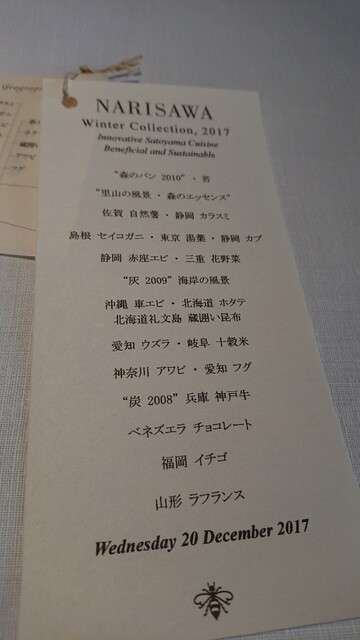 NARISAWA
Winter Collection, 2017
Innovative Satoyama Cuisine
Beneficial and Sustainable
“森のパン 2010”・苔
“里山の風景・森のエッセンス”
佐賀 自然薯・静岡 カラスミ
島根 セイコガニ・東京 湯葉・静岡 カブ
静岡 赤座エビ・三重 花野菜
“灰 2009” 海岸の風景
沖縄 車エビ・北海道 ホタテ
北海道礼文島 蔵囲い昆布
愛知 ウズラ・岐阜 十穀米
神奈川 アワビ・愛知 フグ
“炭 2008” 兵庫 神戸牛
ベネズエラ チョコレート
福岡 イチゴ
山形 ラフランス
Wednesday 20 December 2017